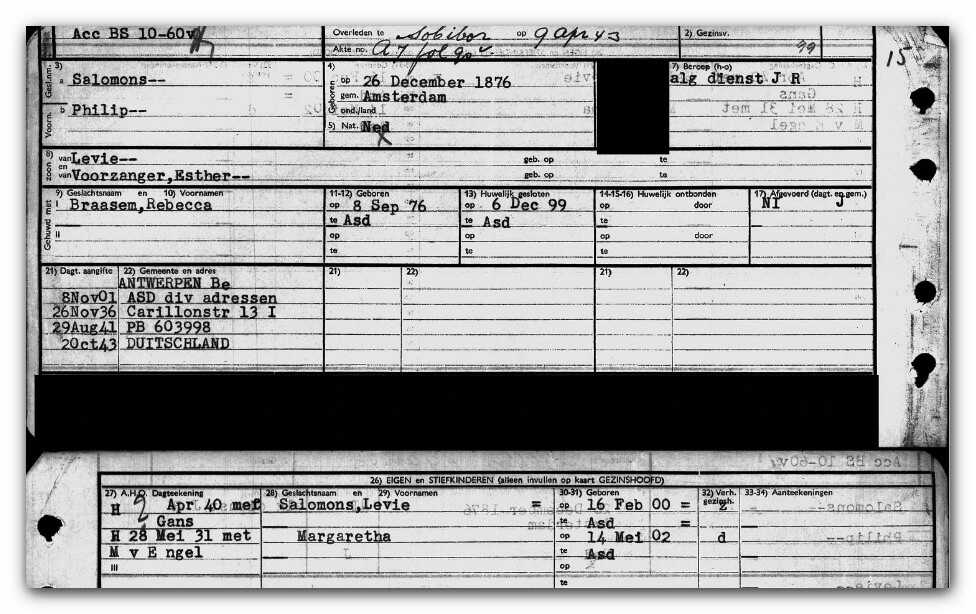 Acc BS 10-60v
Overleden te Sobibor op 9 Apr 43
Akte no. A 7 fol 90v
2) Gezinsv.
99
15
3)
Gesl.nm.
a Salomons--
Voorn.
b Philip--
4)
Geboren
op 26 December 1876
gem. Amsterdam
ond./land
5) Nat. Ned
7) Beroep (h-o)
alg dienst J R
8)
zoon
van Levie-- geb. op te
en
van Voorzanger,Esther-- geb. op te
Gehuwd met
9) Geslachtsnaam en 10) Voornamen
11-12) Geboren
13) Huwelijk gesloten
14-15-16) Huwelijk ontbonden
17) Afgevoerd (dagt. eg.gem.)
I Braasem,Rebecca op 8 Sep 76 op 6 Dec 99 op door NI J
te Asd te Asd te
II op op op door
te te te
21) Dagt. aangifte 22) Gemeente en adres 21) 22) 21) 22)
ANTWERPEN Be
8Nov01 ASD div adressen
26Nov36 Carillonstr 13 I
29Aug41 PB 603998
2Oct43 DUITSCHLAND
26) EIGEN en STIEFKINDEREN (alleen invullen op kaart GEZINSHOOFD)
27) A.H.O. Dagteekening 28) Geslachtsnaam en 29) Voornaam 30-31) Geboren 32) Verh. gezinsh. 33-34) Aanteekeningen
H 2 Apr 40 met Salomons,Levie = op 16 Feb 00 = z
Gans te Asd =
H 28 Mei 31 met Margaretha op 14 Mei 02 d
M v Engel te Asd
III op
te